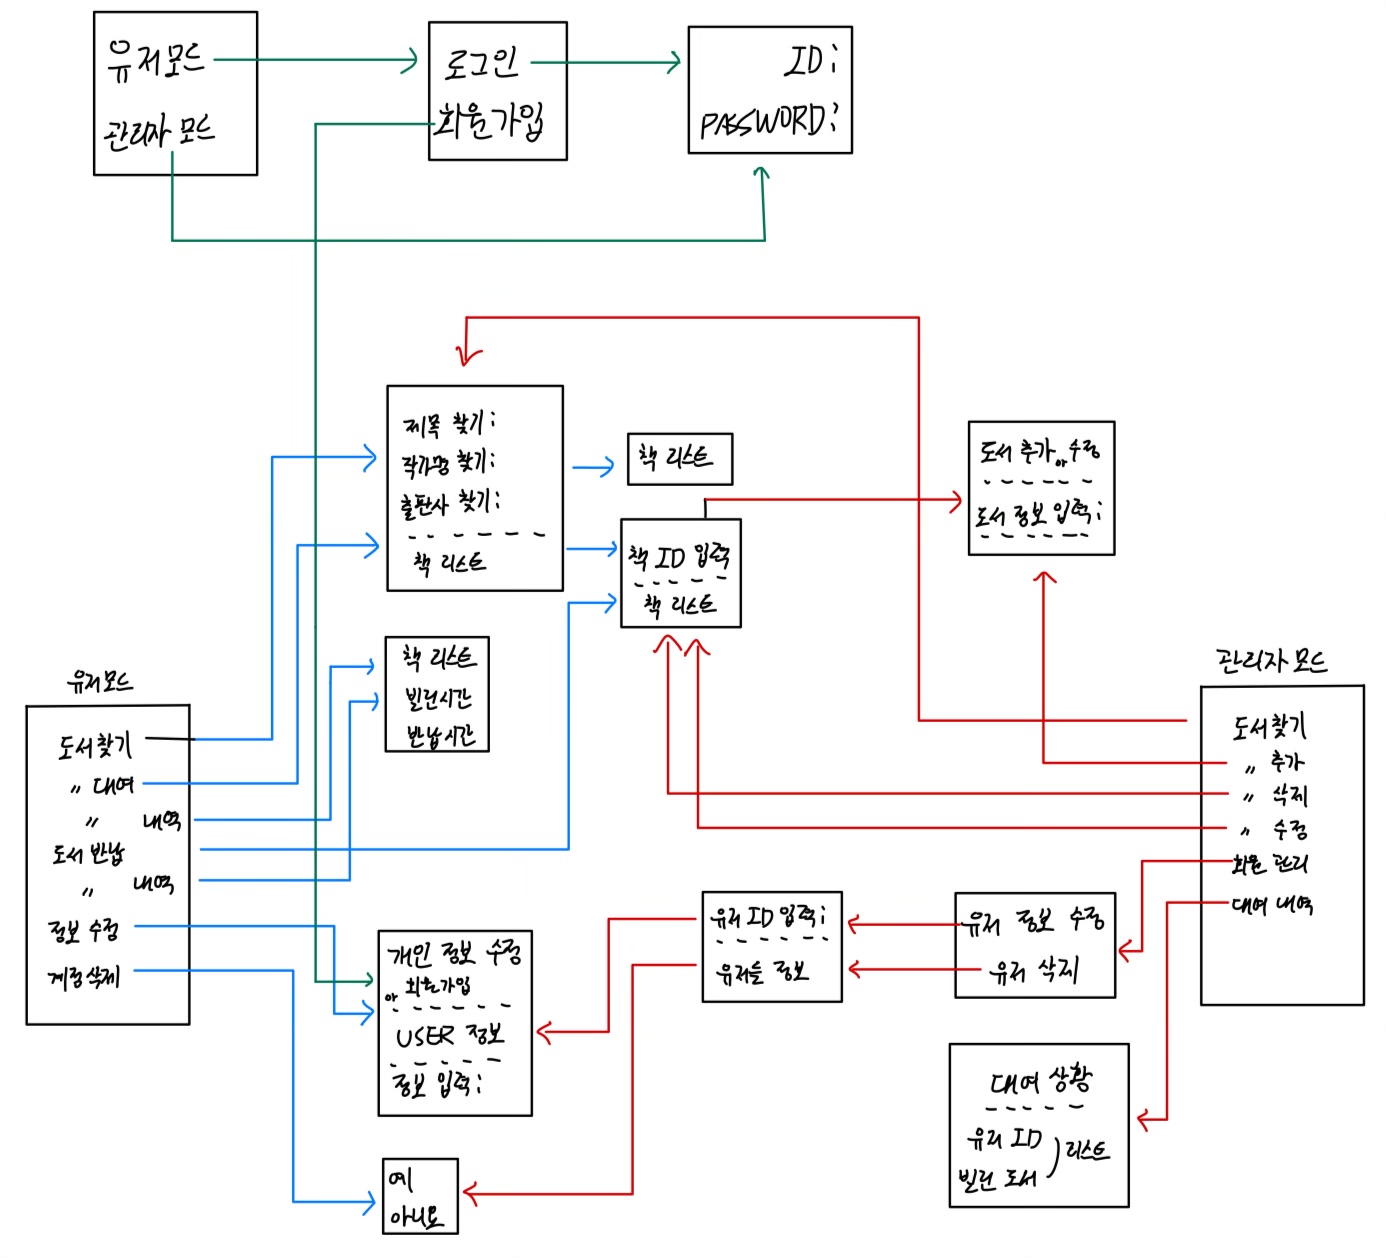 유저모드
관리자 모드
로그인
회원가입
ID:
PASSWORD:
제목 찾기:
작가명 찾기:
출판사 찾기:
책 리스트
책 리스트
책 ID 입력
책 리스트
도서 추가 or 수정
도서 정보 입력:
책 리스트
빌린시간
반납시간
유저모드
도서찾기
〃 대여
〃 내역
도서 반납
〃 내역
정보 수정
계정삭제
관리자 모드
도서찾기
〃 추가
〃 삭제
〃 수정
회원 관리
대여 내역
개인 정보 수정
or 회원가입
USER 정보
정보 입력:
유저 ID 입력:
유저들 정보
유저 정보 수정
유저 삭제
대여 상황
유저 ID
빌린 도서
리스트
예
아니요